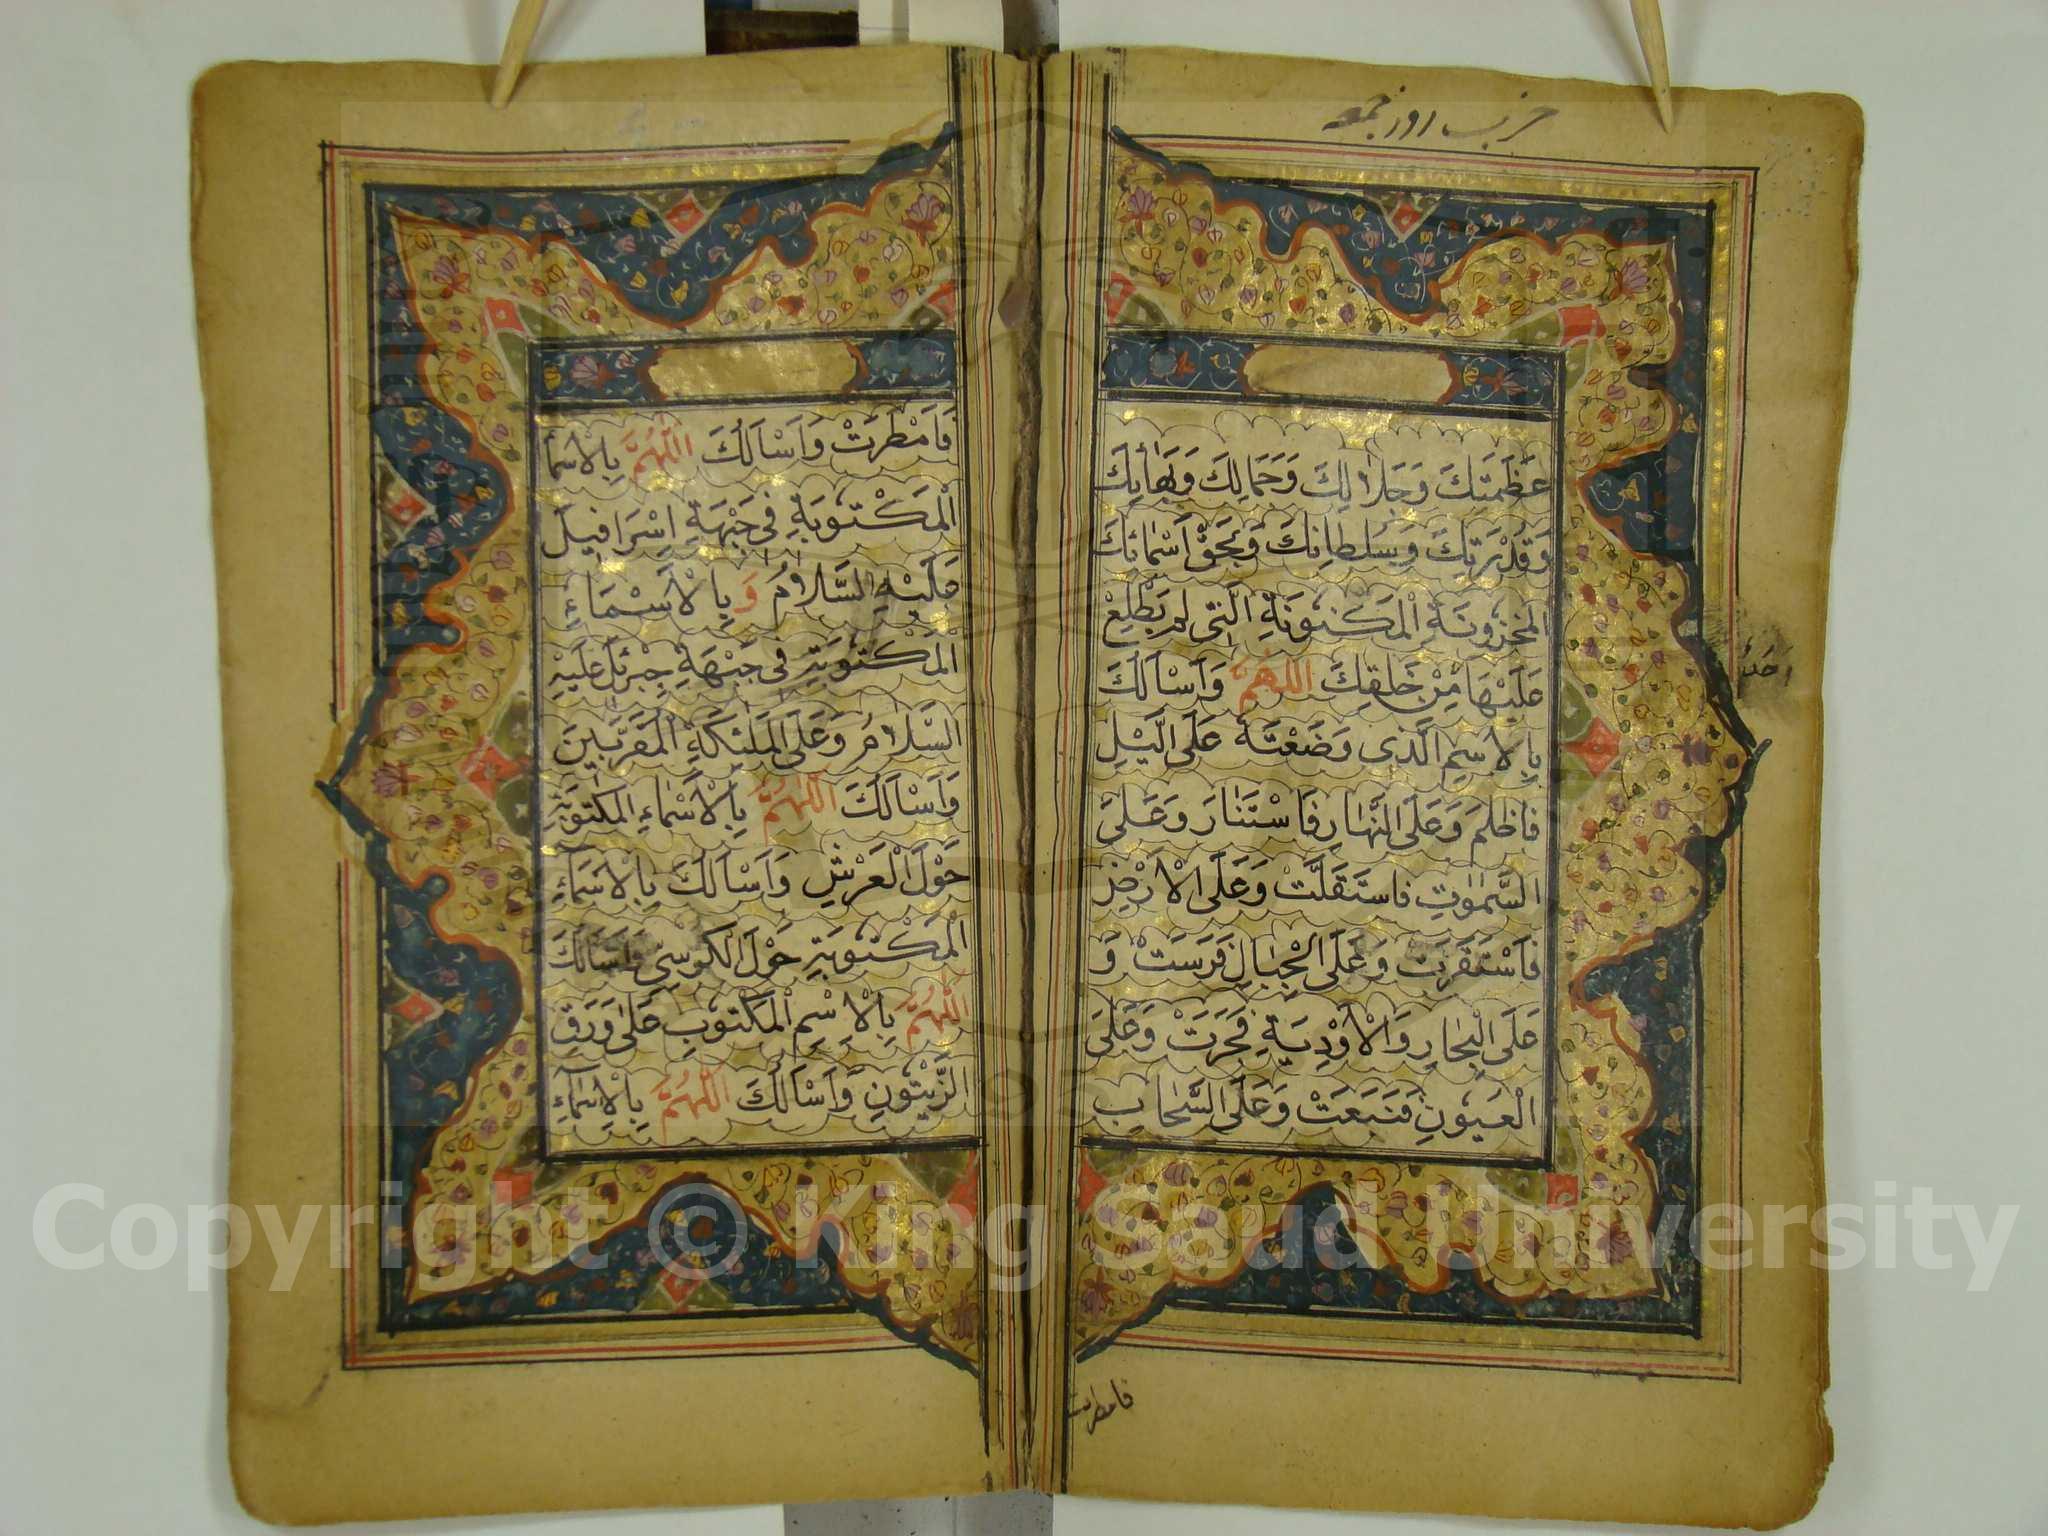 حزب روز جمعه
عَظَمَتِكَ وَجَلَالِكَ وَجَمَالِكَ وَبَهَائِكَ
وَقُدْرَتِكَ وَسُلْطَانِكَ وَبِحَقِّ اَسْمَائِكَ
الْمَخْزُونَةِ الْمَكْنُونَةِ الَّتِى لَمْ يَطَّلِعْ
عَلَيْهَا مِنْ خَلْقِكَ اللّٰهُمَّ وَاَسْاَلُكَ
بِالْاِسْمِ الَّذِى وَضَعْتَهُ عَلَى الَّيْلِ
فَاَظْلَمَ وَعَلَى النَّهَارِ فَاسْتَنَارَ وَعَلَى
السَّمٰوٰتِ فَاسْتَقَلَّتْ وَعَلَى الْاَرْضِ
فَاسْتَقَرَّتْ وَعَلَى الْجِبَالِ فَرَسَتْ وَ
عَلَى الْبِحَارِ وَالْاَوْدِيَةِ فَجَرَتْ وَعَلَى
الْعُيُونِ فَنَبَعَتْ وَعَلَى السَّحَابِ
فامطرت
فَاَمْطَرَتْ وَاَسْاَلُكَ اللّٰهُمَّ بِالْاَسْمَا
الْمَكْتُوبَةِ فِى جَبْهَةِ اِسْرَافِيلَ
عَلَيْهِ السَّلَامُ وَ بِالْاَسْمَاءِ
الْمَكْتُوبَةِ فِى جَبْهَةِ جِبْرَئِلَ عَلَيْهِ
السَّلَامُ وَعَلَى الْمَلٰئِكَةِ الْمُقَرَّبِينَ
وَاَسْاَلُكَ اللّٰهُمَّ بِالْاَسْمَاءِ الْمَكْتُوبَةِ
حَوْلَ الْعَرْشِ وَاَسْاَلُكَ بِالْاَسْمَاءِ
الْمَكْتُوبَةِ حَوْلَ الْكُرْسِىِّ وَاَسْاَلُكَ
اللّٰهُمَّ بِالْاِسْمِ الْمَكْتُوبِ عَلٰى وَرَقِ
الزَّيْتُونِ وَاَسْاَلُكَ اللّٰهُمَّ بِالْاَسْمَآءِ
Copyright © King Saud University